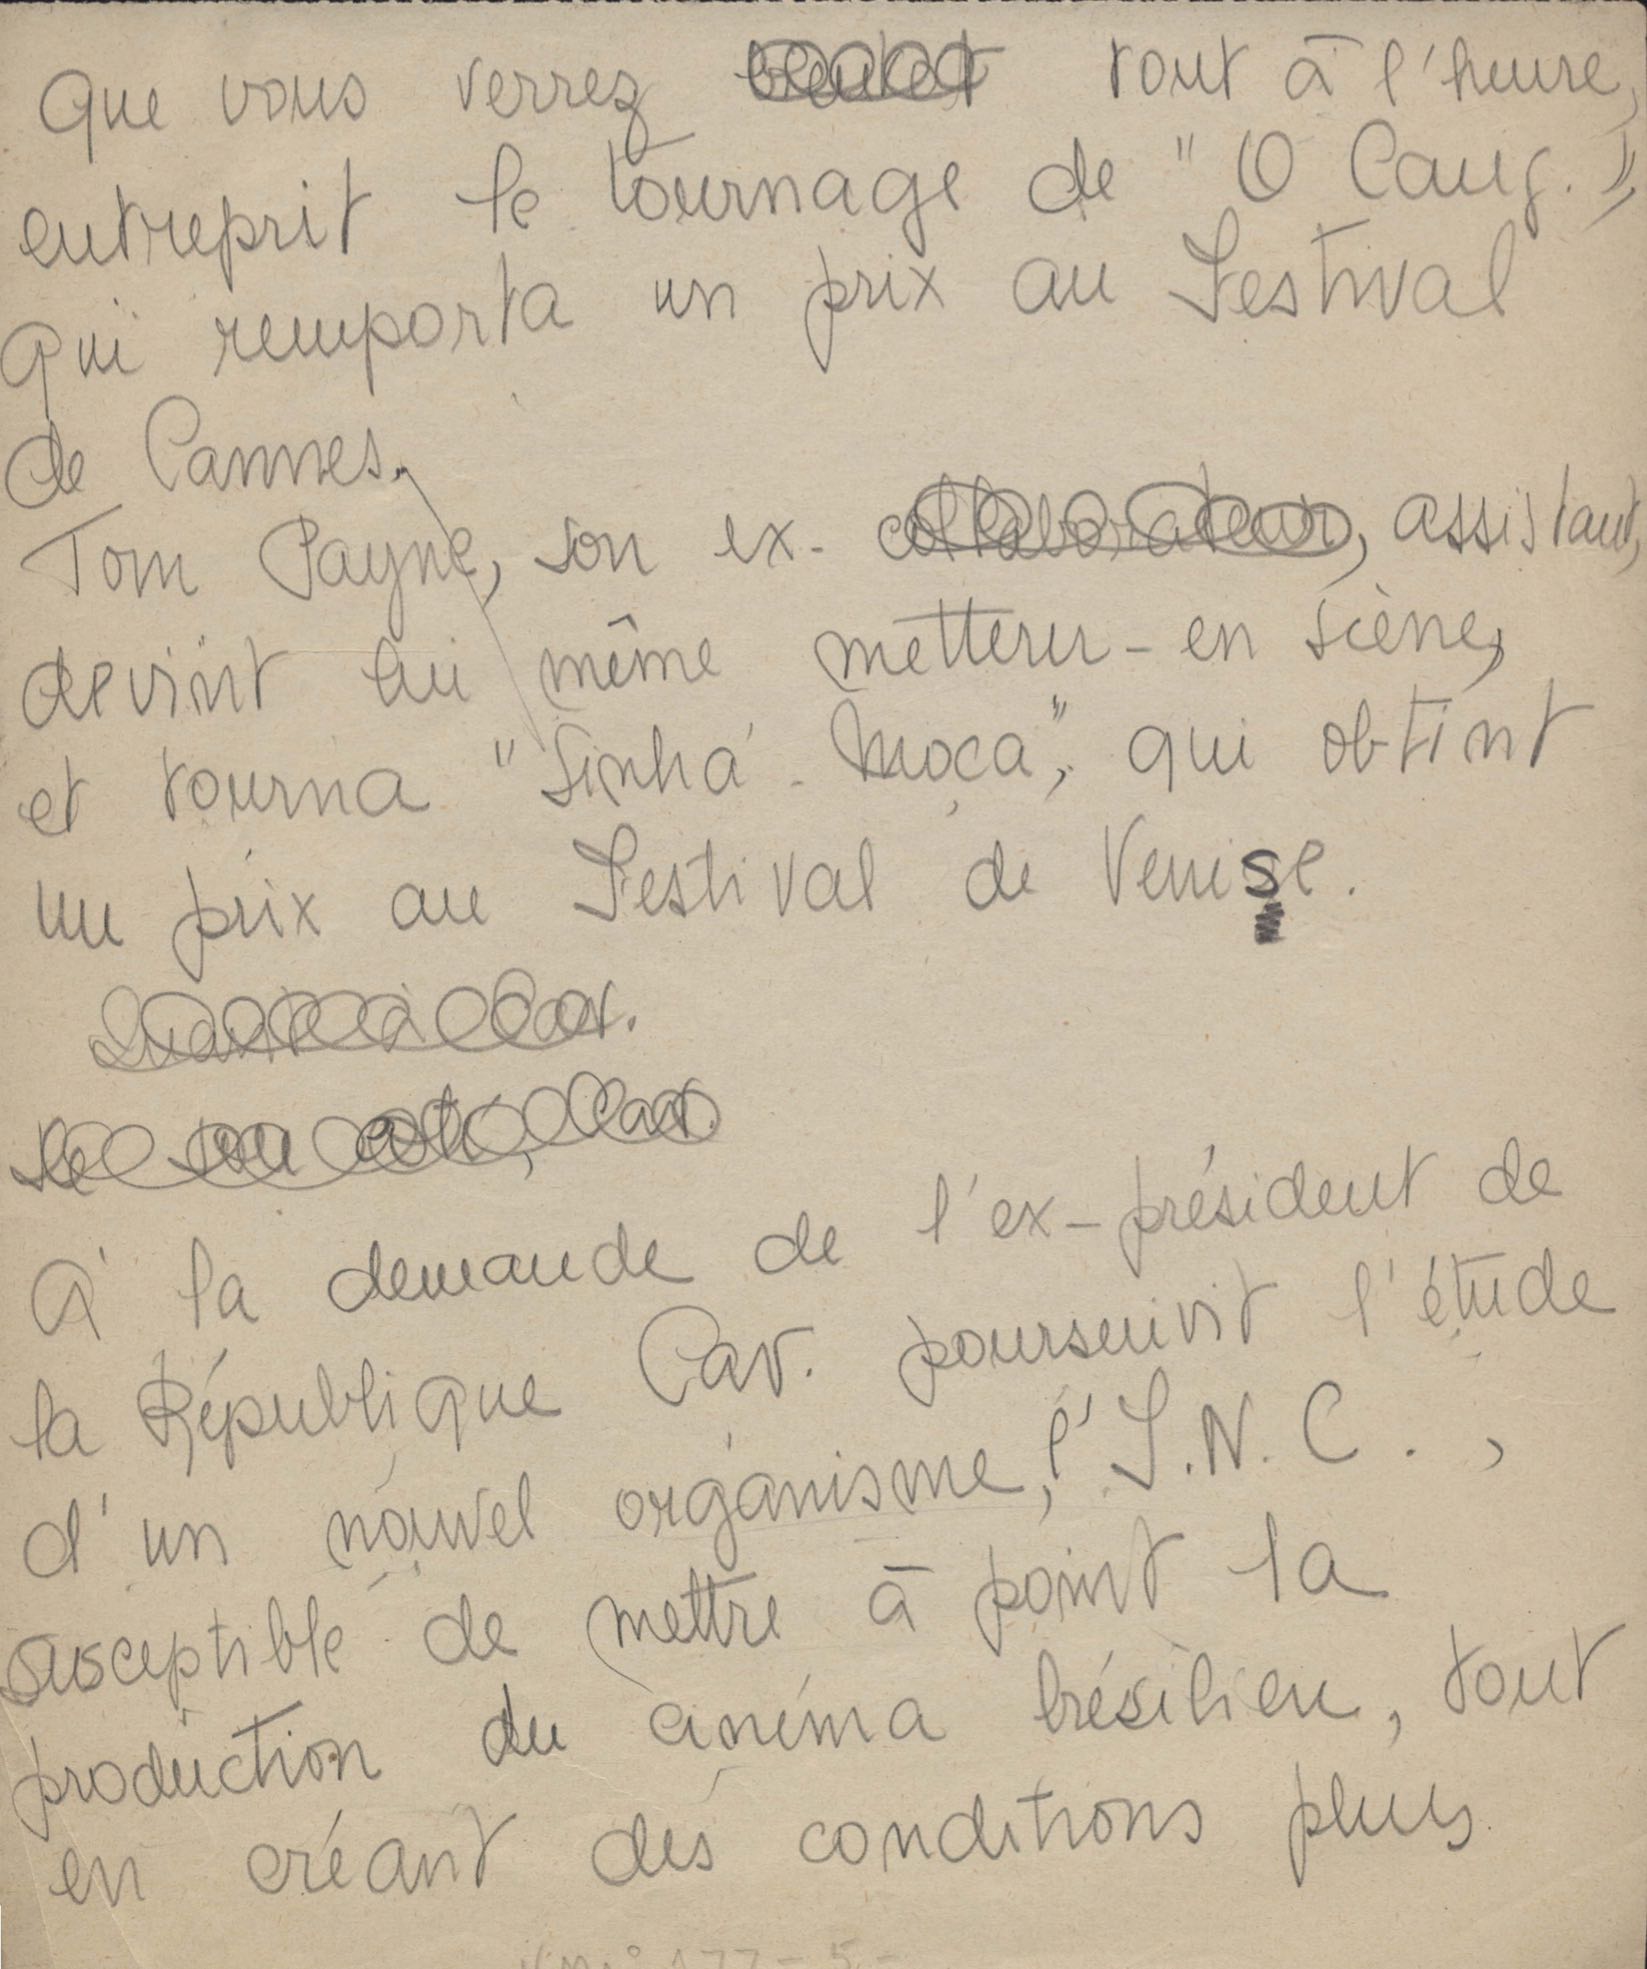 que vous verrez tout à l'heure,
entreprit le tournage de "O Cang.",
qui remporta un prix au Festival
de Cannes.
Tom Payne, son ex-collaborateur, assistant,
devint lui même metterur-en scène,
et tourna "Sinhá-Moça", qui obtint
un prix au Festival de Venise.
Quant à Cav.
De son coté, Cav.
A' la demande de l'ex-président de
la République Cav. poursuivit l'étude
d'un nouvel organisme, l'I.N.C.,
susceptible de mettre à point la
production du cinéma brésilien, tout
en créant des conditions plus